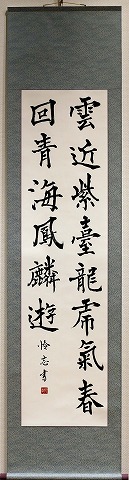 雲近紫臺龍虎氣春
回青海鳳麟遊
怜志書